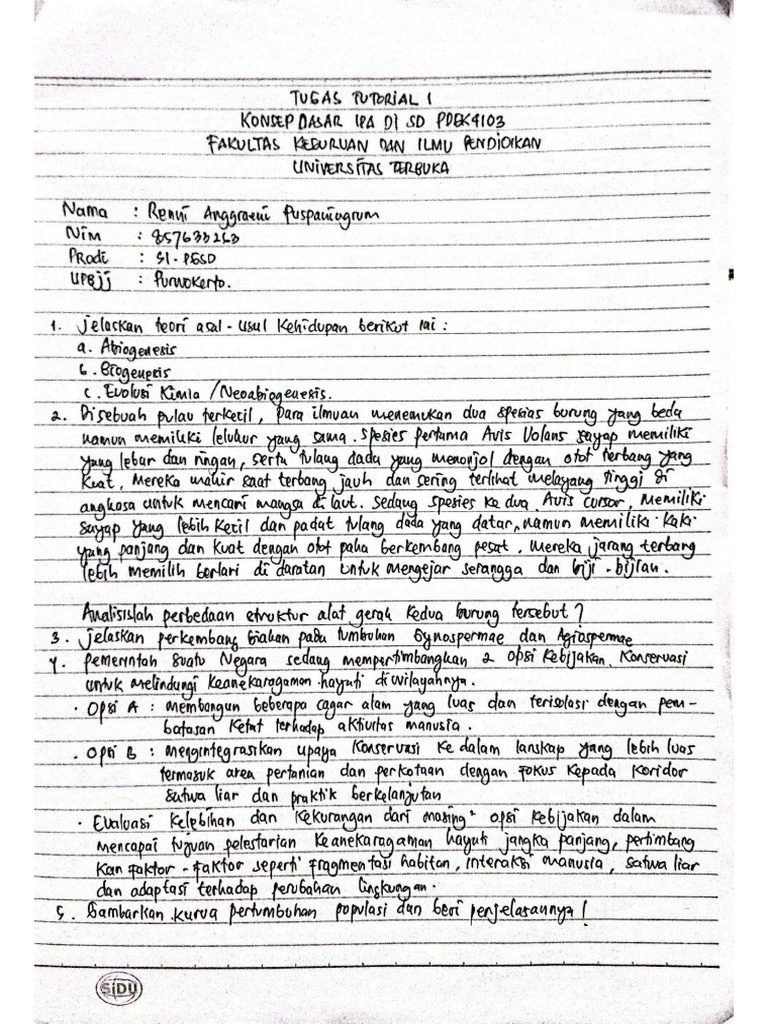 TUGAS TUTORIAL 1
KONSEP DASAR IPA DI SD PDGK4103
FAKULTAS KEGURUAN DAN ILMU PENDIDIKAN
UNIVERSITAS TERBUKA
Nama : Renni Anggraeni Puspaningrum
Nim : 857633263
Prodi : S1-PGSD
UPBJJ : Purwokerto.
1. jelaskan teori asal-usul kehidupan berikut ini :
a. Abiogenesis
b. Biogenesis
c. Evolusi Kimia /Neoabiogenesis.
2. Disebuah pulau terkecil, para ilmuan menemukan dua spesias burung yang beda
namun memiliki leluhur yang sama. Spesies pertama Avis Volans sayap memiliki
yang lebar dan ringan, serta tulang dada yang menonjol dengan otot terbang yang
kuat, Mereka mahir saat terbang jauh dan sering terlihat melayang tinggi di
angkasa untuk mencari mangsa di laut. Sedang spesies ke dua Avis cursor, memiliki
sayap yang lebih kecil dan padat tulang dada yang datar, namun memiliki kaki
yang panjang dan kuat dengan otot paha berkembang pesat. Mereka jarang terbang
lebih memilih berlari di daratan untuk mengejar serangga dan biji-bijian.
Analisislah perbedaan struktur alat gerak kedua burung tersebut?
3. jelaskan perkembang biakan pada tumbuhan Gynospermae dan Agiospermae
4. pemerintah suatu Negara sedang mempertimbangkan 2 opsi kebijakan konservasi
untuk melindungi keanekaragaman hayati di wilayahnya.
• Opsi A : membangun beberapa cagar alam yang luas dan terisolasi dengan pem-
batasan ketat terhadap aktivitas manusia.
• Opsi B : mengintegrasikan upaya konservasi ke dalam lanskap yang lebih luas
termasuk area pertanian dan perkotaan dengan fokus kepada koridor
satwa liar dan praktik berkelanjutan
• Evaluasi kelebihan dan kekurangan dari masing² opsi kebijakan dalam
mencapai tujuan pelestarian keanekaragaman hayati jangka panjang, pertimbang
kan faktor-faktor seperti fragmentasi habitan, interaksi manusia, satwa liar
dan adaptasi terhadap perubahan lingkungan.
5. Gambarkan kurva pertumbuhan populasi dan beri penjelasannya!
SiDU